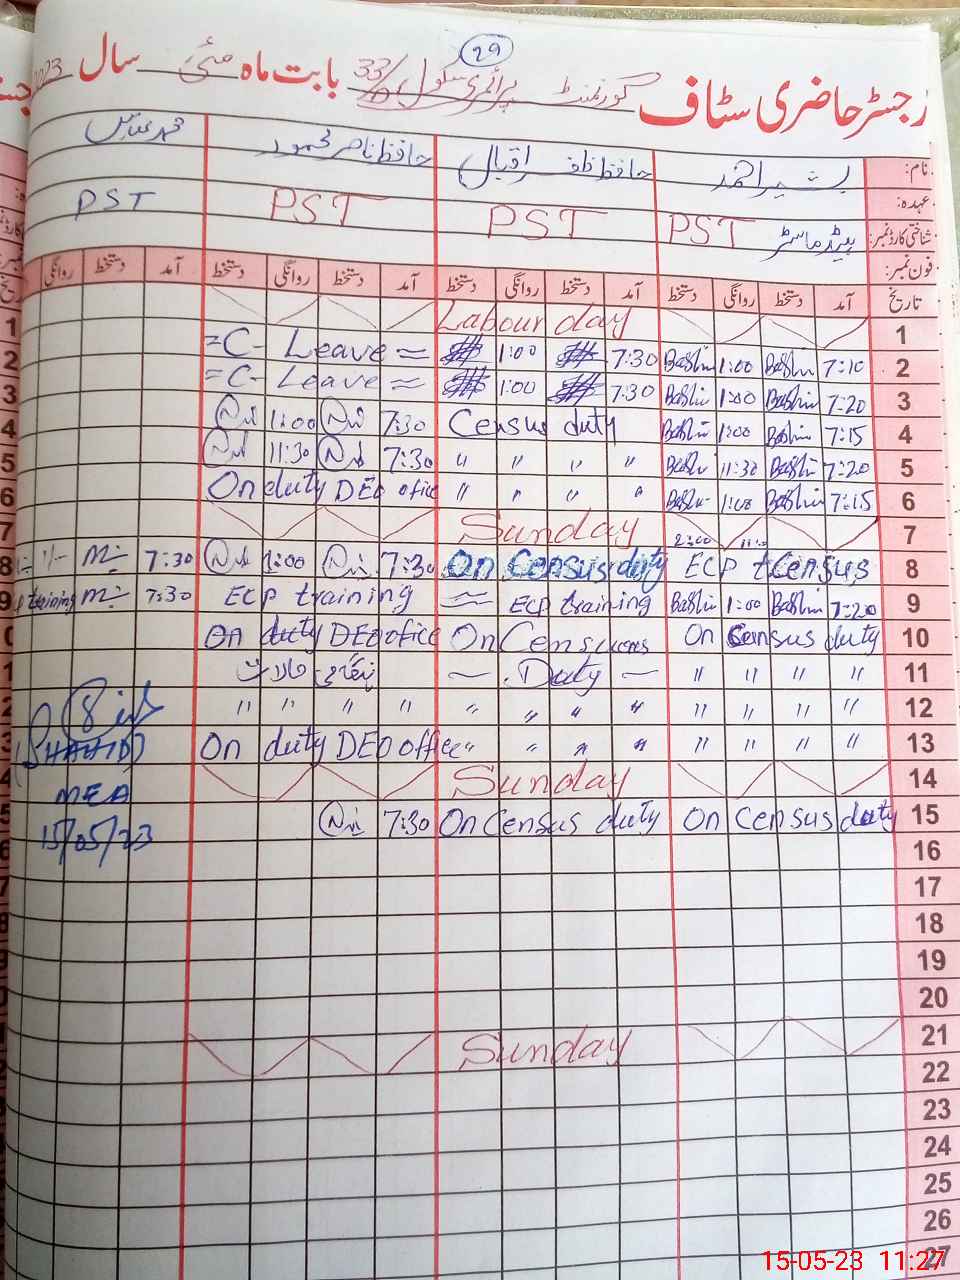 29
رجسٹر حاضری سٹاف گورنمنٹ پرائمری سکول 33/ بابت ماہ مئی سال
نام: بشیر احمد حافظ ظفر اقبال حافظ ناصر محمود محمد عباس
عہدہ: PST ہیڈ ماسٹر PST PST PST
شناختی کارڈ نمبر:
فون نمبر:
تاریخ آمد دستخط روانگی دستخط آمد دستخط روانگی دستخط آمد دستخط روانگی دستخط آمد دستخط روانگی
Labour day 1
= C- Leave = 1:00 7:30 Bashir 1:00 Bashir 7:10 2
= C- Leave = 1:00 7:30 Bashir 1:00 Bashir 7:20 3
1:00 7:30 Census duty Bashir 1:00 Bashir 7:15 4
11:30 7:30 " " " " Bashir 11:30 Bashir 7:20 5
On duty DEO office " " " " Bashir 1:00 Bashir 7:15 6
Sunday 7
7:30 1:00 7:30 On Census duty ECP + Census 8
training 7:30 ECP training = ECP training Bashir 1:00 Bashir 7:20 9
On duty DEO office On Census On Census duty 10
— Duty — " " " " 11
" " " " " " " " " " " " 12
On duty DEO office " " " " " " " " 13
Sunday 14
7:30 On Census duty On Census duty 15
(SHAHID)
MEA
15/05/23
16
17
18
19
20
Sunday 21
22
23
24
25
26
27
15-05-23 11:27